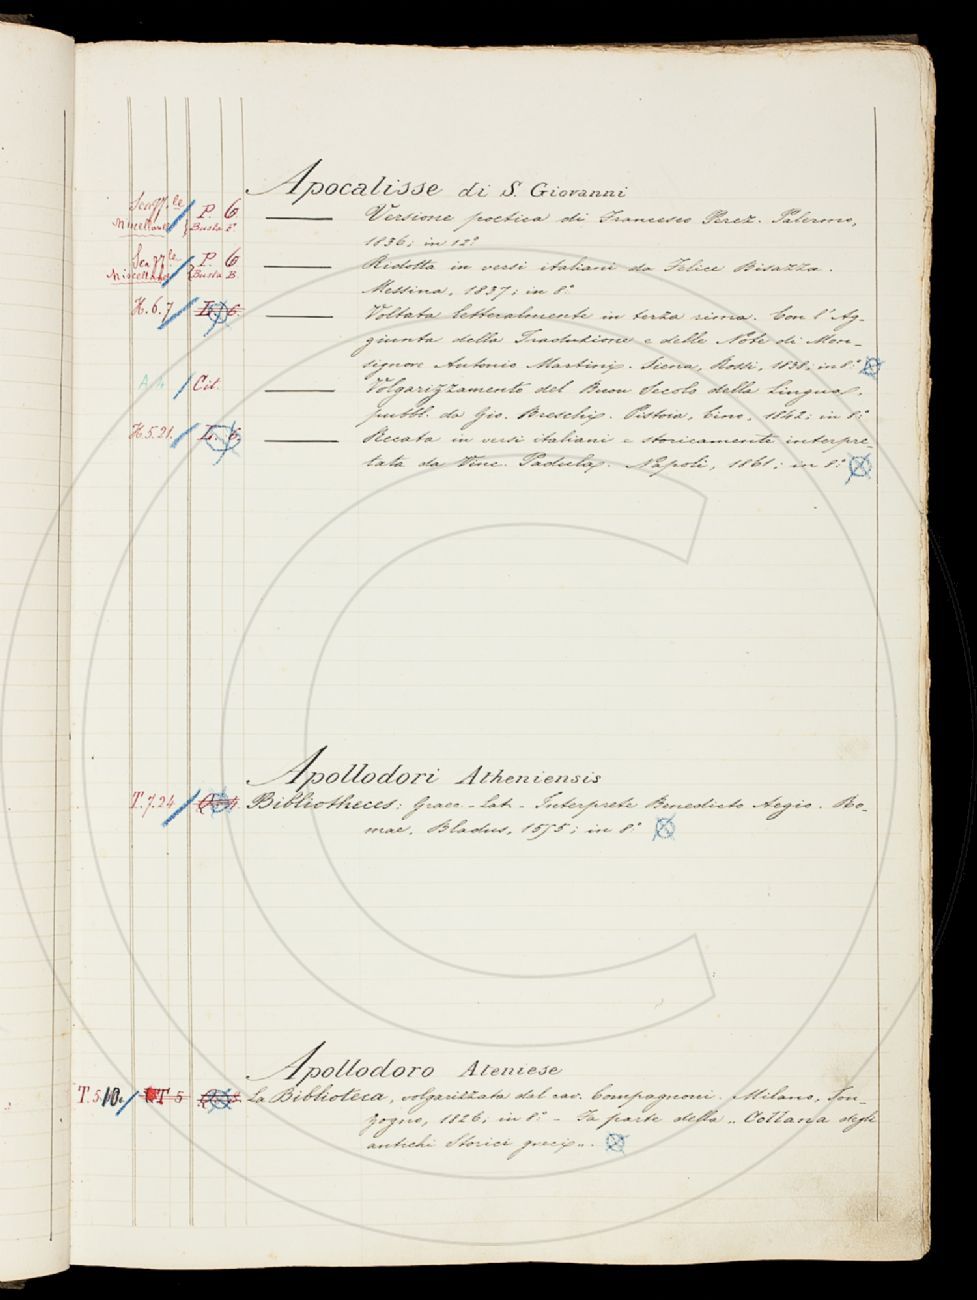 Apocalisse di S. Giovanni
Scaff.le P. 6 Versione poetica di Francesco Perez. Palermo,
Miscellanea Busta 1836; in 12.º
Scaff.le P. 6 Ridotta in versi italiani da Felice Bisazza.
Miscellanea Busta B. Messina, 1837; in 8.º
H. 6. 7 Voltata letteralmente in terza rima. Con l'Ag-
giunta della Traduzione e delle Note di Mon-
signore Antonio Martini. Siena, Rossi, 1838; in 8.º
Cit. Volgarizzamento del Buon Secolo della Lingua,
pubbl. da Gio. Breschi. Pistoia, Cino, 1842; in 8.º
H. 5. 21. Recata in versi italiani e storicamente interpre-
tata da Vinc. Padula. Napoli, 1861; in 8.º
Apollodori Atheniensis
T. 7. 24 Bibliotheces: Graec-Lat- Interprete Benedicto Aegio. Ro-
mae. Bladus, 1575; in 8.º
Apollodoro Ateniese
T. 5. 10. T 5 La Biblioteca, volgarizzata dal cav. Compagnoni. Milano, Son-
zogno, 1826, in 8.º - Fa parte della „ Collana degli
antichi Storici greci „.